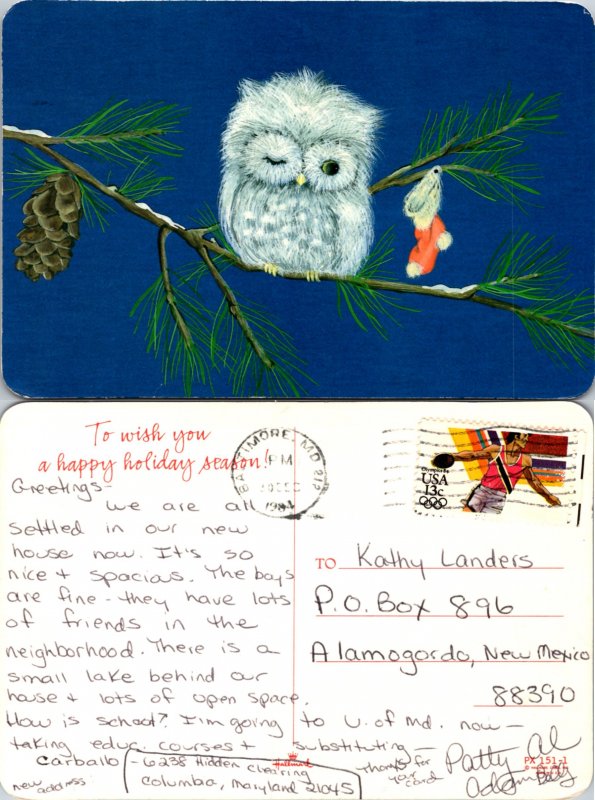 To wish you
a happy holiday season!
BALTIMORE, MD
PM
DEC
1984
Olympics 84
USA
13c
Greetings-
We are all
settled in our new
house now. It's so
nice + spacious. The boys
are fine - they have lots
of friends in the
neighborhood. There is a
small lake behind our
house + lots of open space.
How is school? I'm going to U. of Md. now—
taking educ. courses + substituting—
Thanks for
your card
Patty Al
Carballo - 6238 Hidden Clearing
new address
Columbia, Maryland 21045
Hallmark
PX 151-1
TO Kathy Landers
P.O. Box 896
Alamogordo, New Mexico
88390